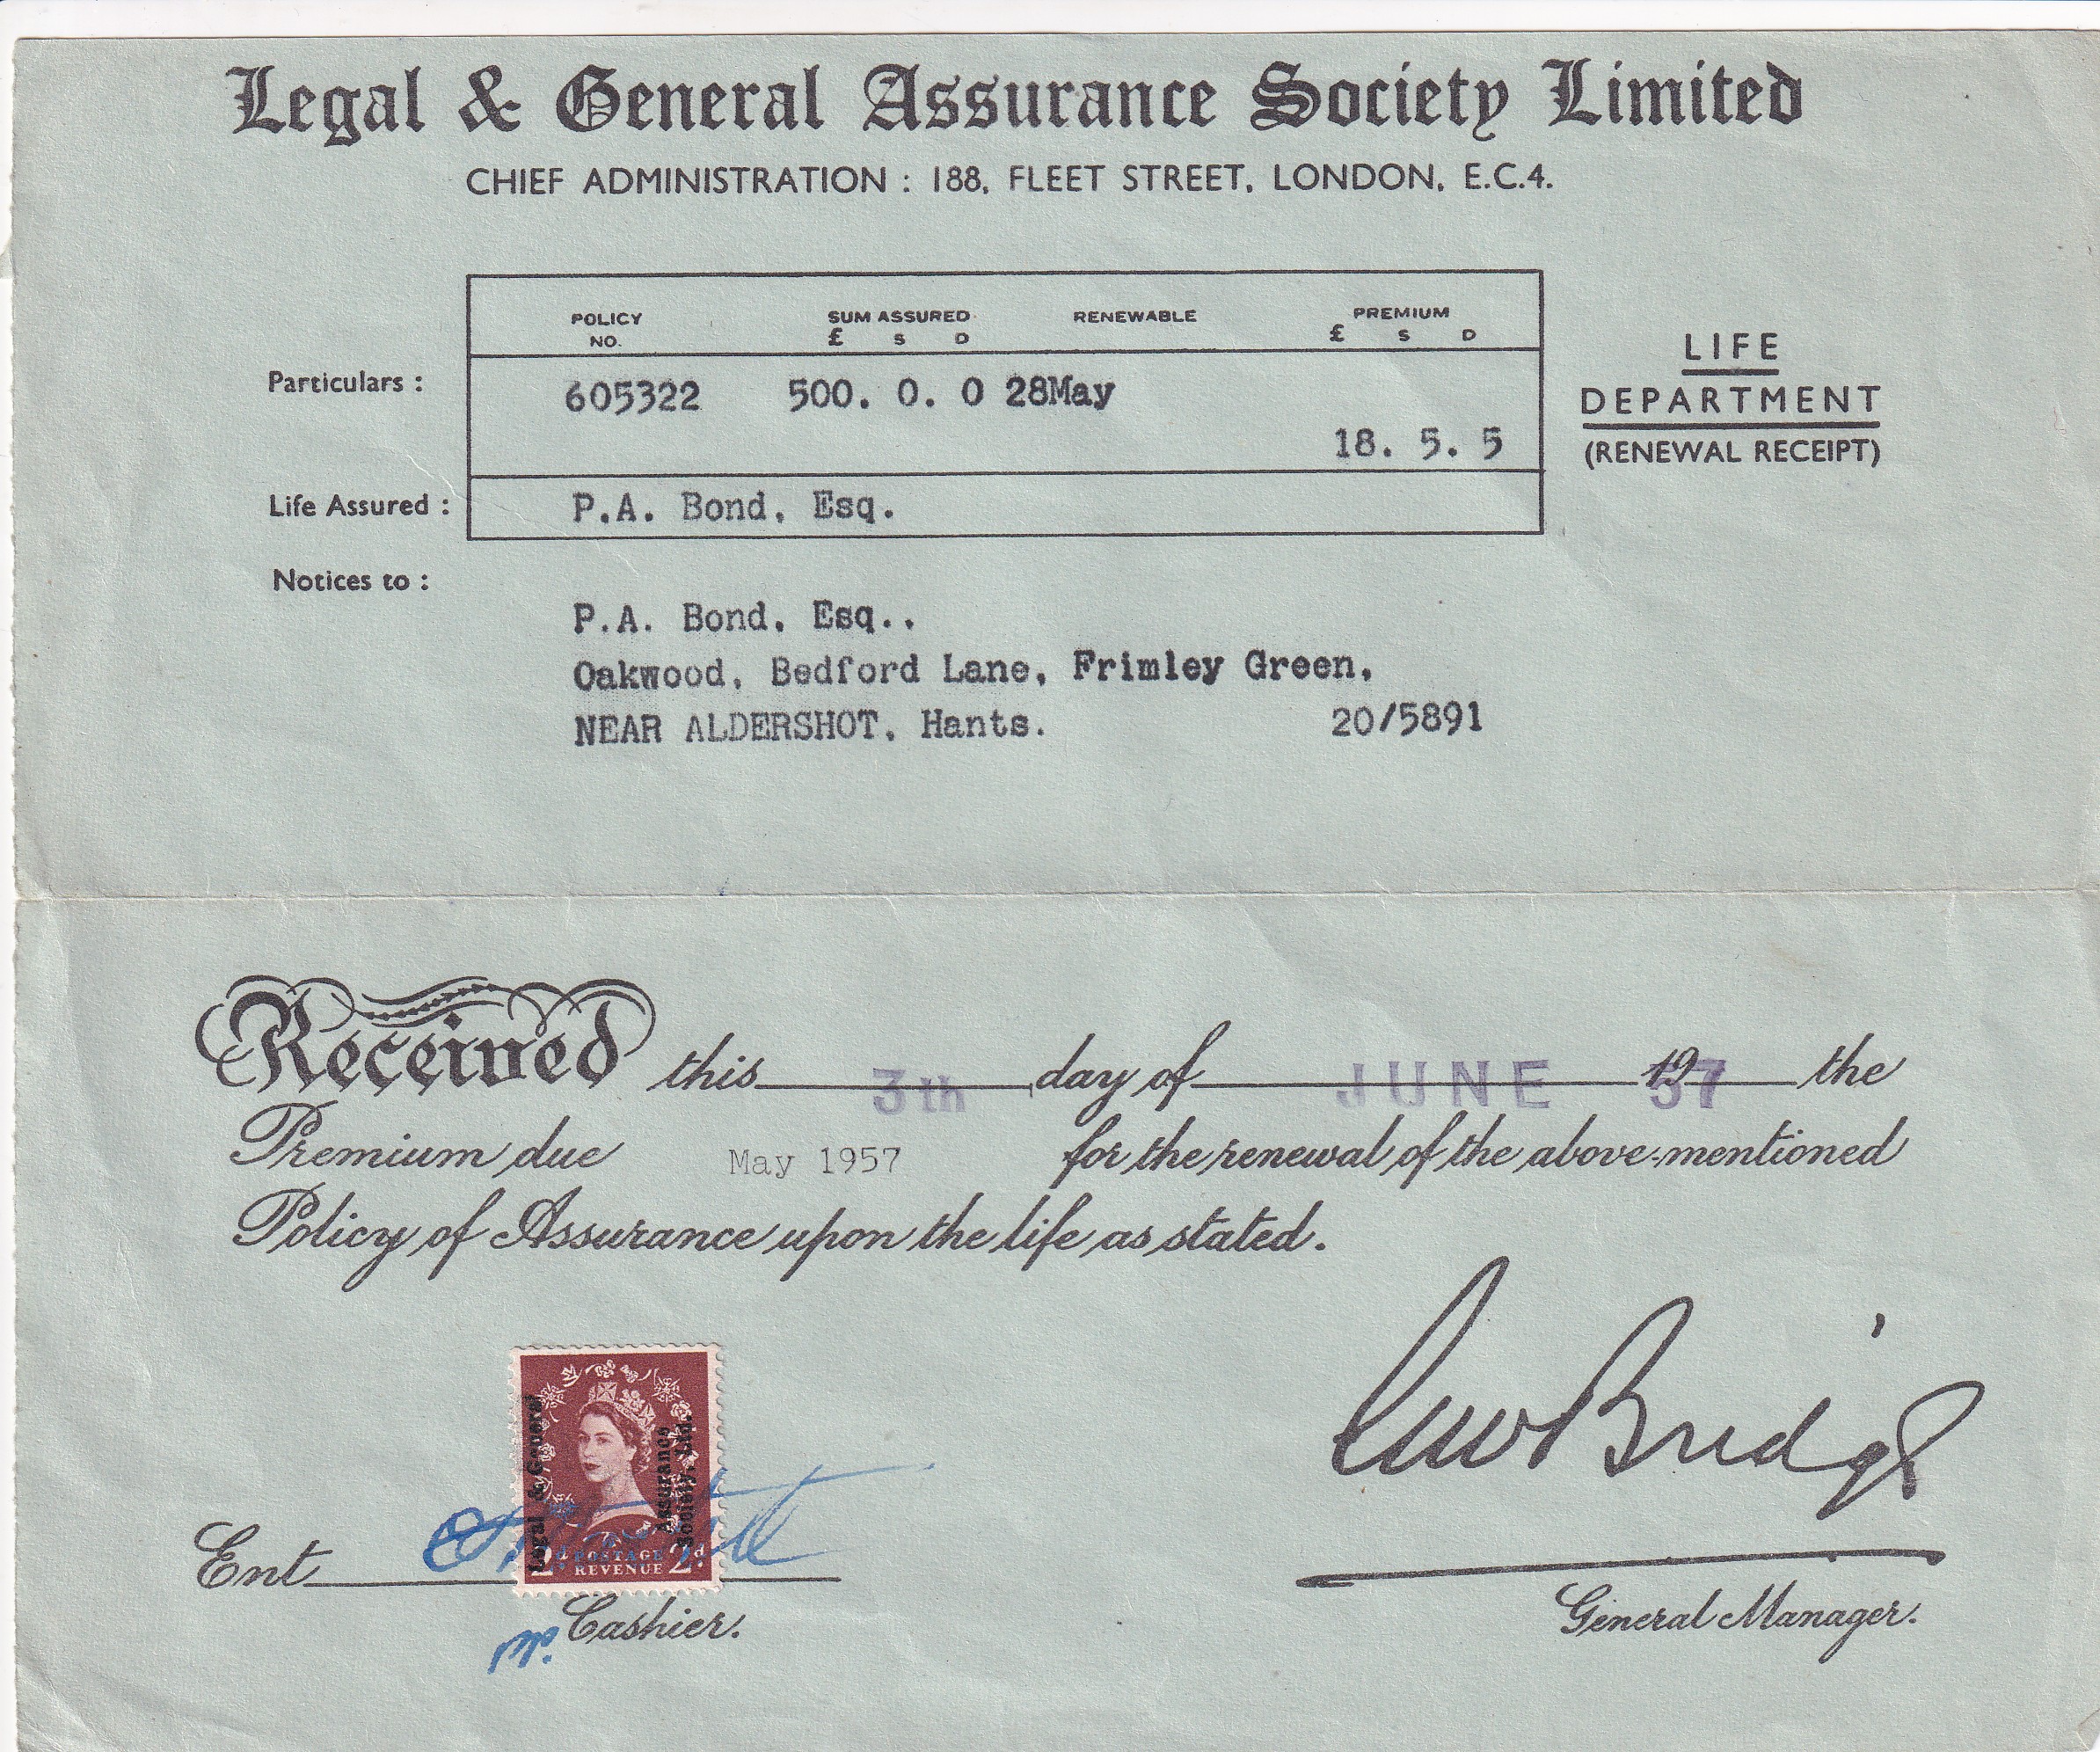 Legal & General Assurance Society Limited
CHIEF ADMINISTRATION : 188, FLEET STREET, LONDON, E.C.4.
POLICY NO. SUM ASSURED £ S D RENEWABLE PREMIUM £ S D
LIFE
DEPARTMENT
(RENEWAL RECEIPT)
Particulars : 605322 500. 0. 0 28May
18. 5. 5
Life Assured : P.A. Bond, Esq.
Notices to :
P.A. Bond, Esq..
Oakwood, Bedford Lane, Frimley Green,
NEAR ALDERSHOT, Hants. 20/5891
Received this 3th day of JUNE 1957 the
Premium due May 1957 for the renewal of the above-mentioned
Policy of Assurance upon the life as stated.
Legal & General
Assurance
Society, Ltd.
2d POSTAGE REVENUE 2d
Ent
pp. Cashier.
General Manager.